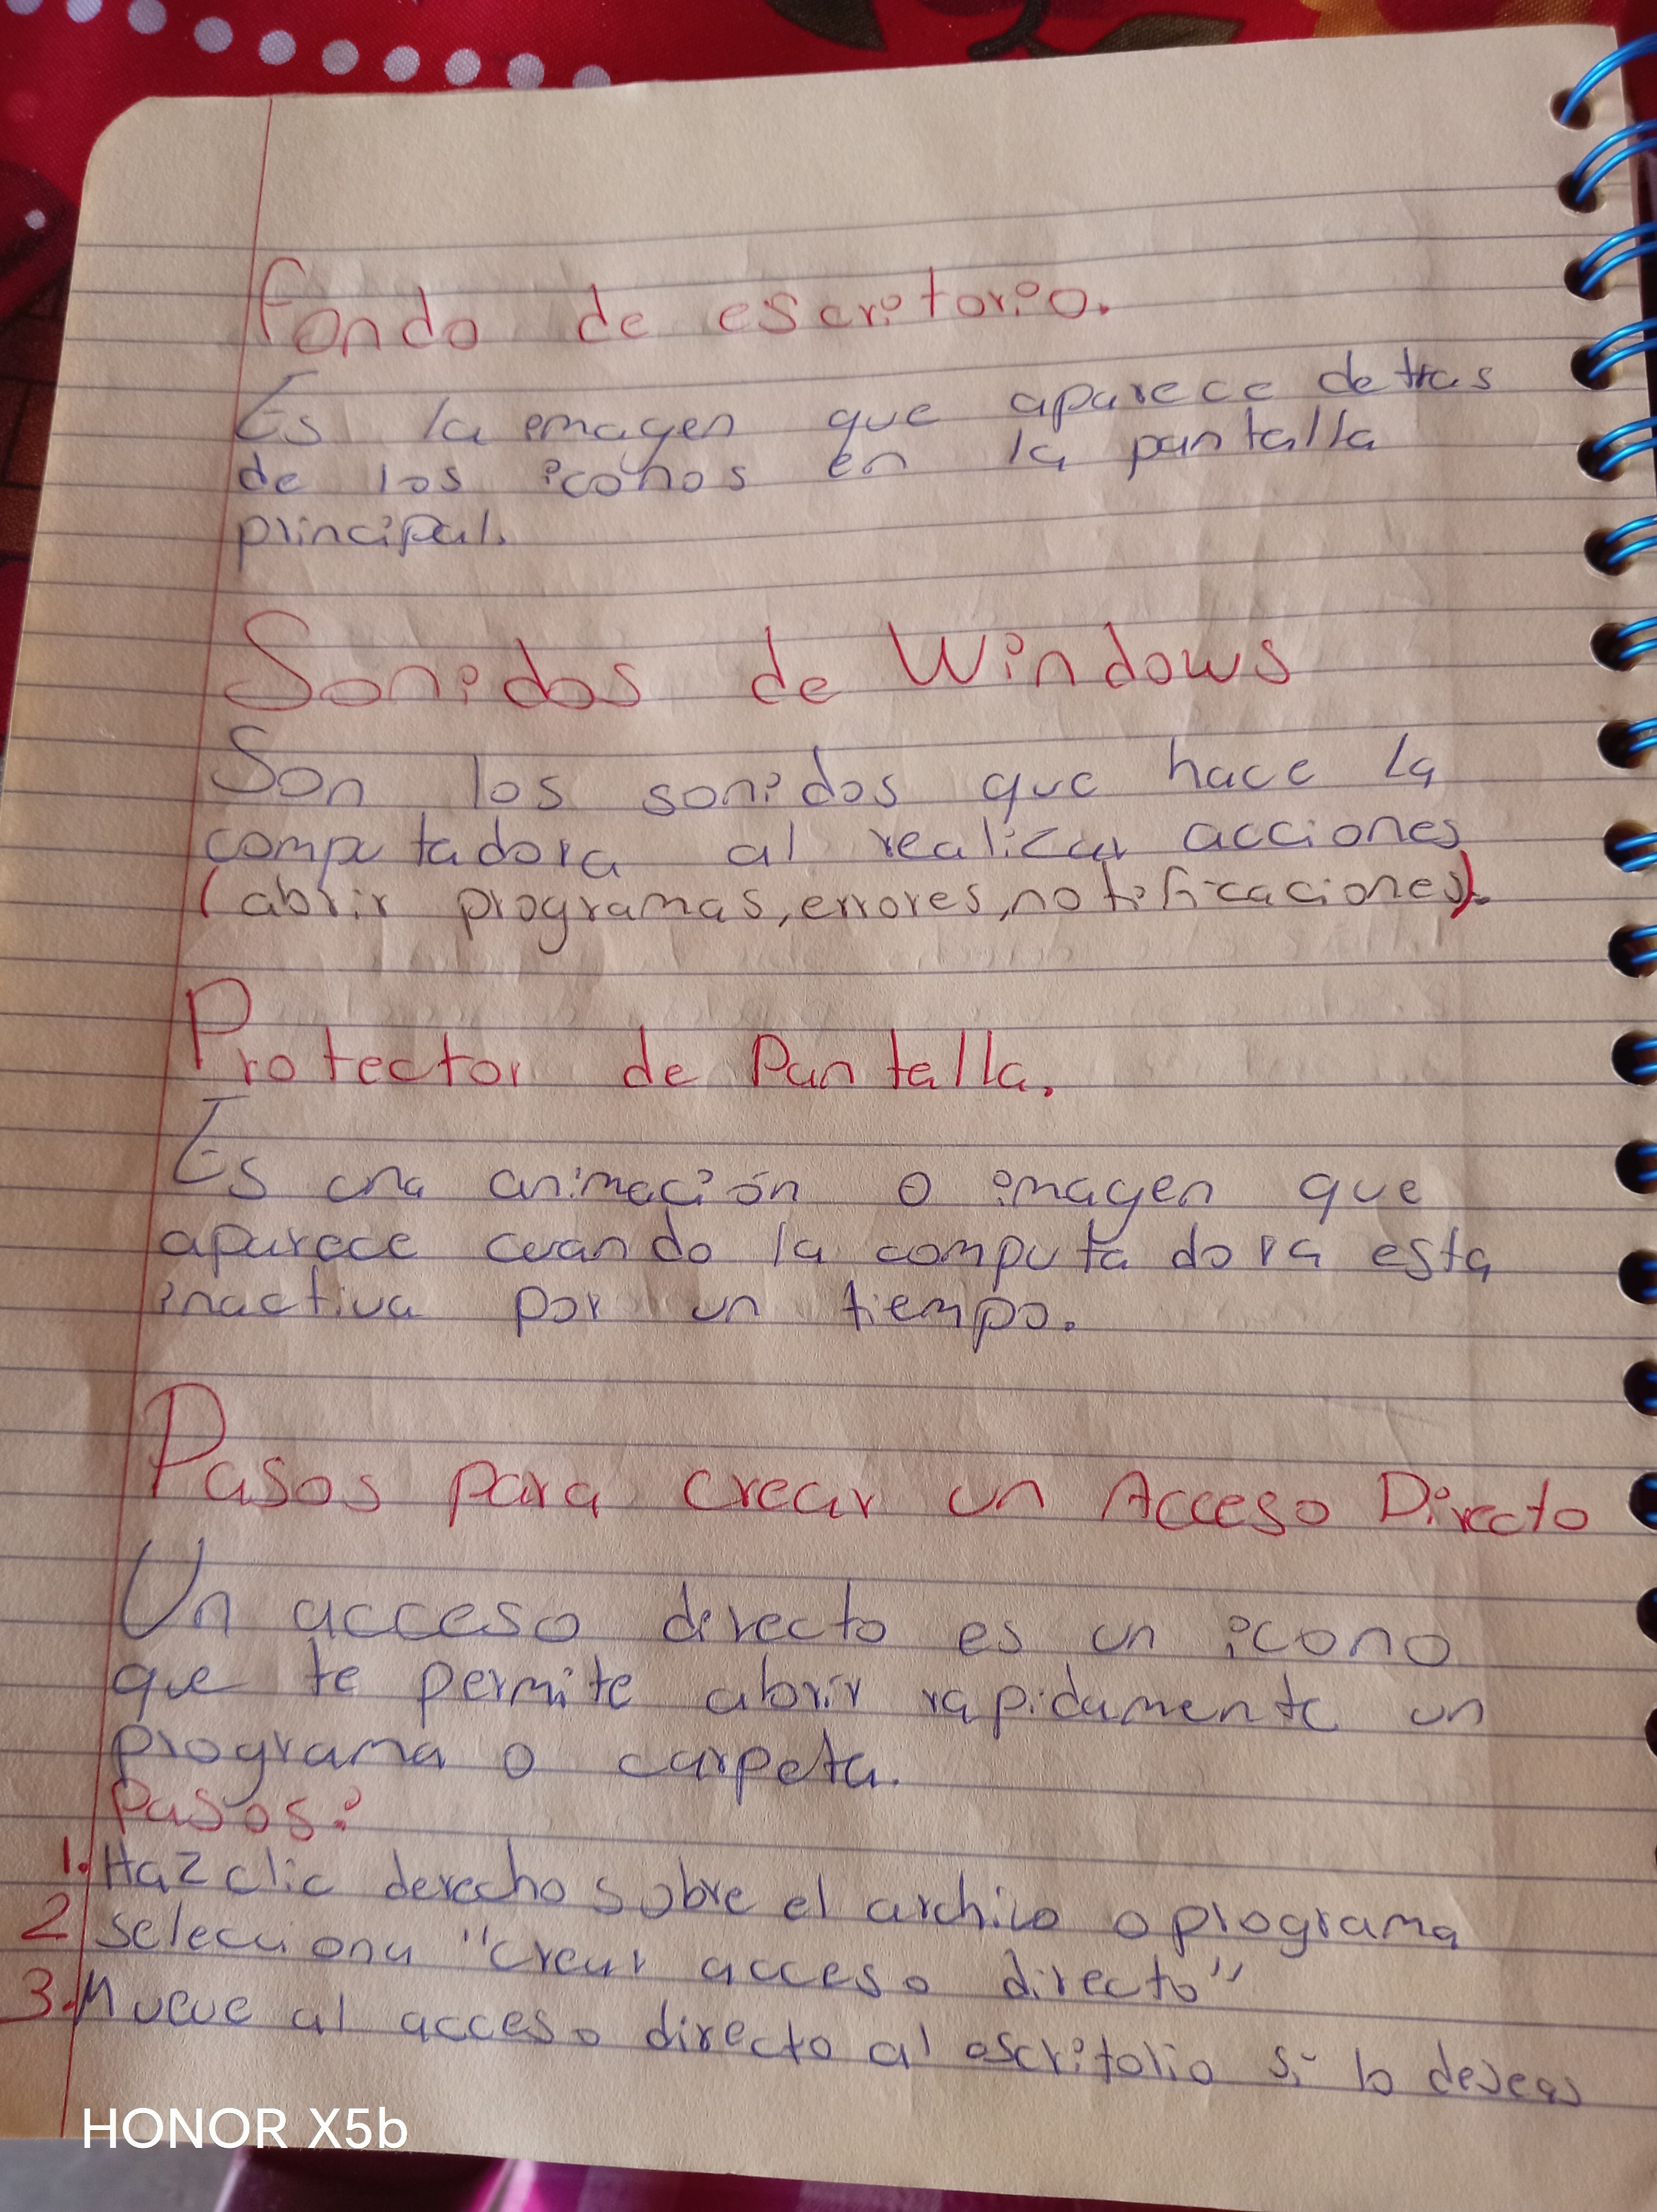 Fondo de escritorio.
Es la imagen que aparece detras
de los iconos en la pantalla
principal.
Sonidos de Windows
Son los sonidos que hace la
computadora al realizar acciones
(abrir programas, errores, notificaciones).
Protector de Pantalla.
Es una animación o imagen que
aparece cuando la computadora esta
inactiva por un tiempo.
Pasos para crear un Acceso Directo
Un acceso directo es un icono
que te permite abrir rapidamente un
programa o carpeta.
Pasos:
1. Haz clic derecho sobre el archivo o programa
2 selecciona "crear acceso directo"
3. Mueve al acceso directo al escritorio si lo deseas
HONOR X5b